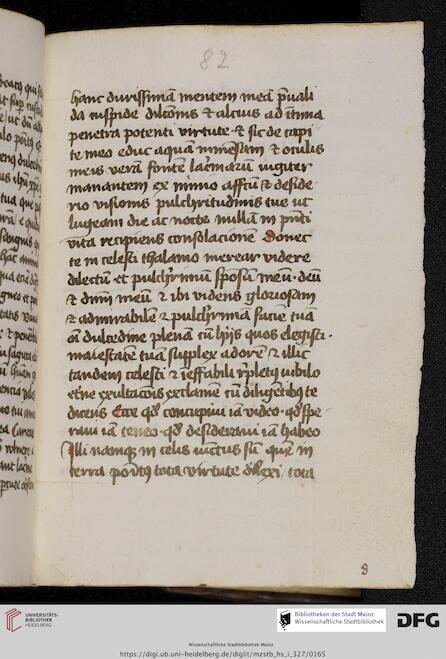 82
hanc durissimā mentem meā p̄uali
da cuspide dilcōnis et alcius ad ītima
penetra potenti virtute et sic de capi
te meo educ aquam et oculis
meis verā fontē lac̓marū iugiter
manantem ex nimio affc̄tu et deside
rio visionis pulchritudinis tue ut
lugeam die ac nocte nullā in p̄nti
vita recipiens consolacionē Donec
te in celesti thalamo merear videre
dilectū et pulch̓rimū sponsū meū deū
et dn̄m meū et ibi videns gloriosam
et admirabilē et pulch̓rimā faciē tuā
oī dulcedine plenā cū hijs quos elegisti
maiestatē tuā supplex adorē et illic
tandem celesti et ieffabili repletus iubilo
et̄ne exultacōis exclamē cū diligētibus te
dicens Ecce qd̄ concupiui iā video qd̄ spe
raui iā teneo qd̄ desideraui iā habeo
Illi namque in celis iūctus sū quē in
terra positus tota virtute dilexi tota
8
UNIVERSITÄTS-
BIBLIOTHEK
HEIDELBERG
Bibliotheken der Stadt Mainz
Wissenschaftliche Stadtbibliothek
DFG
Wissenschaftliche Stadtbibliothek Mainz
https://digi.ub.uni-heidelberg.de/diglit/mzstb_hs_i_327/0165